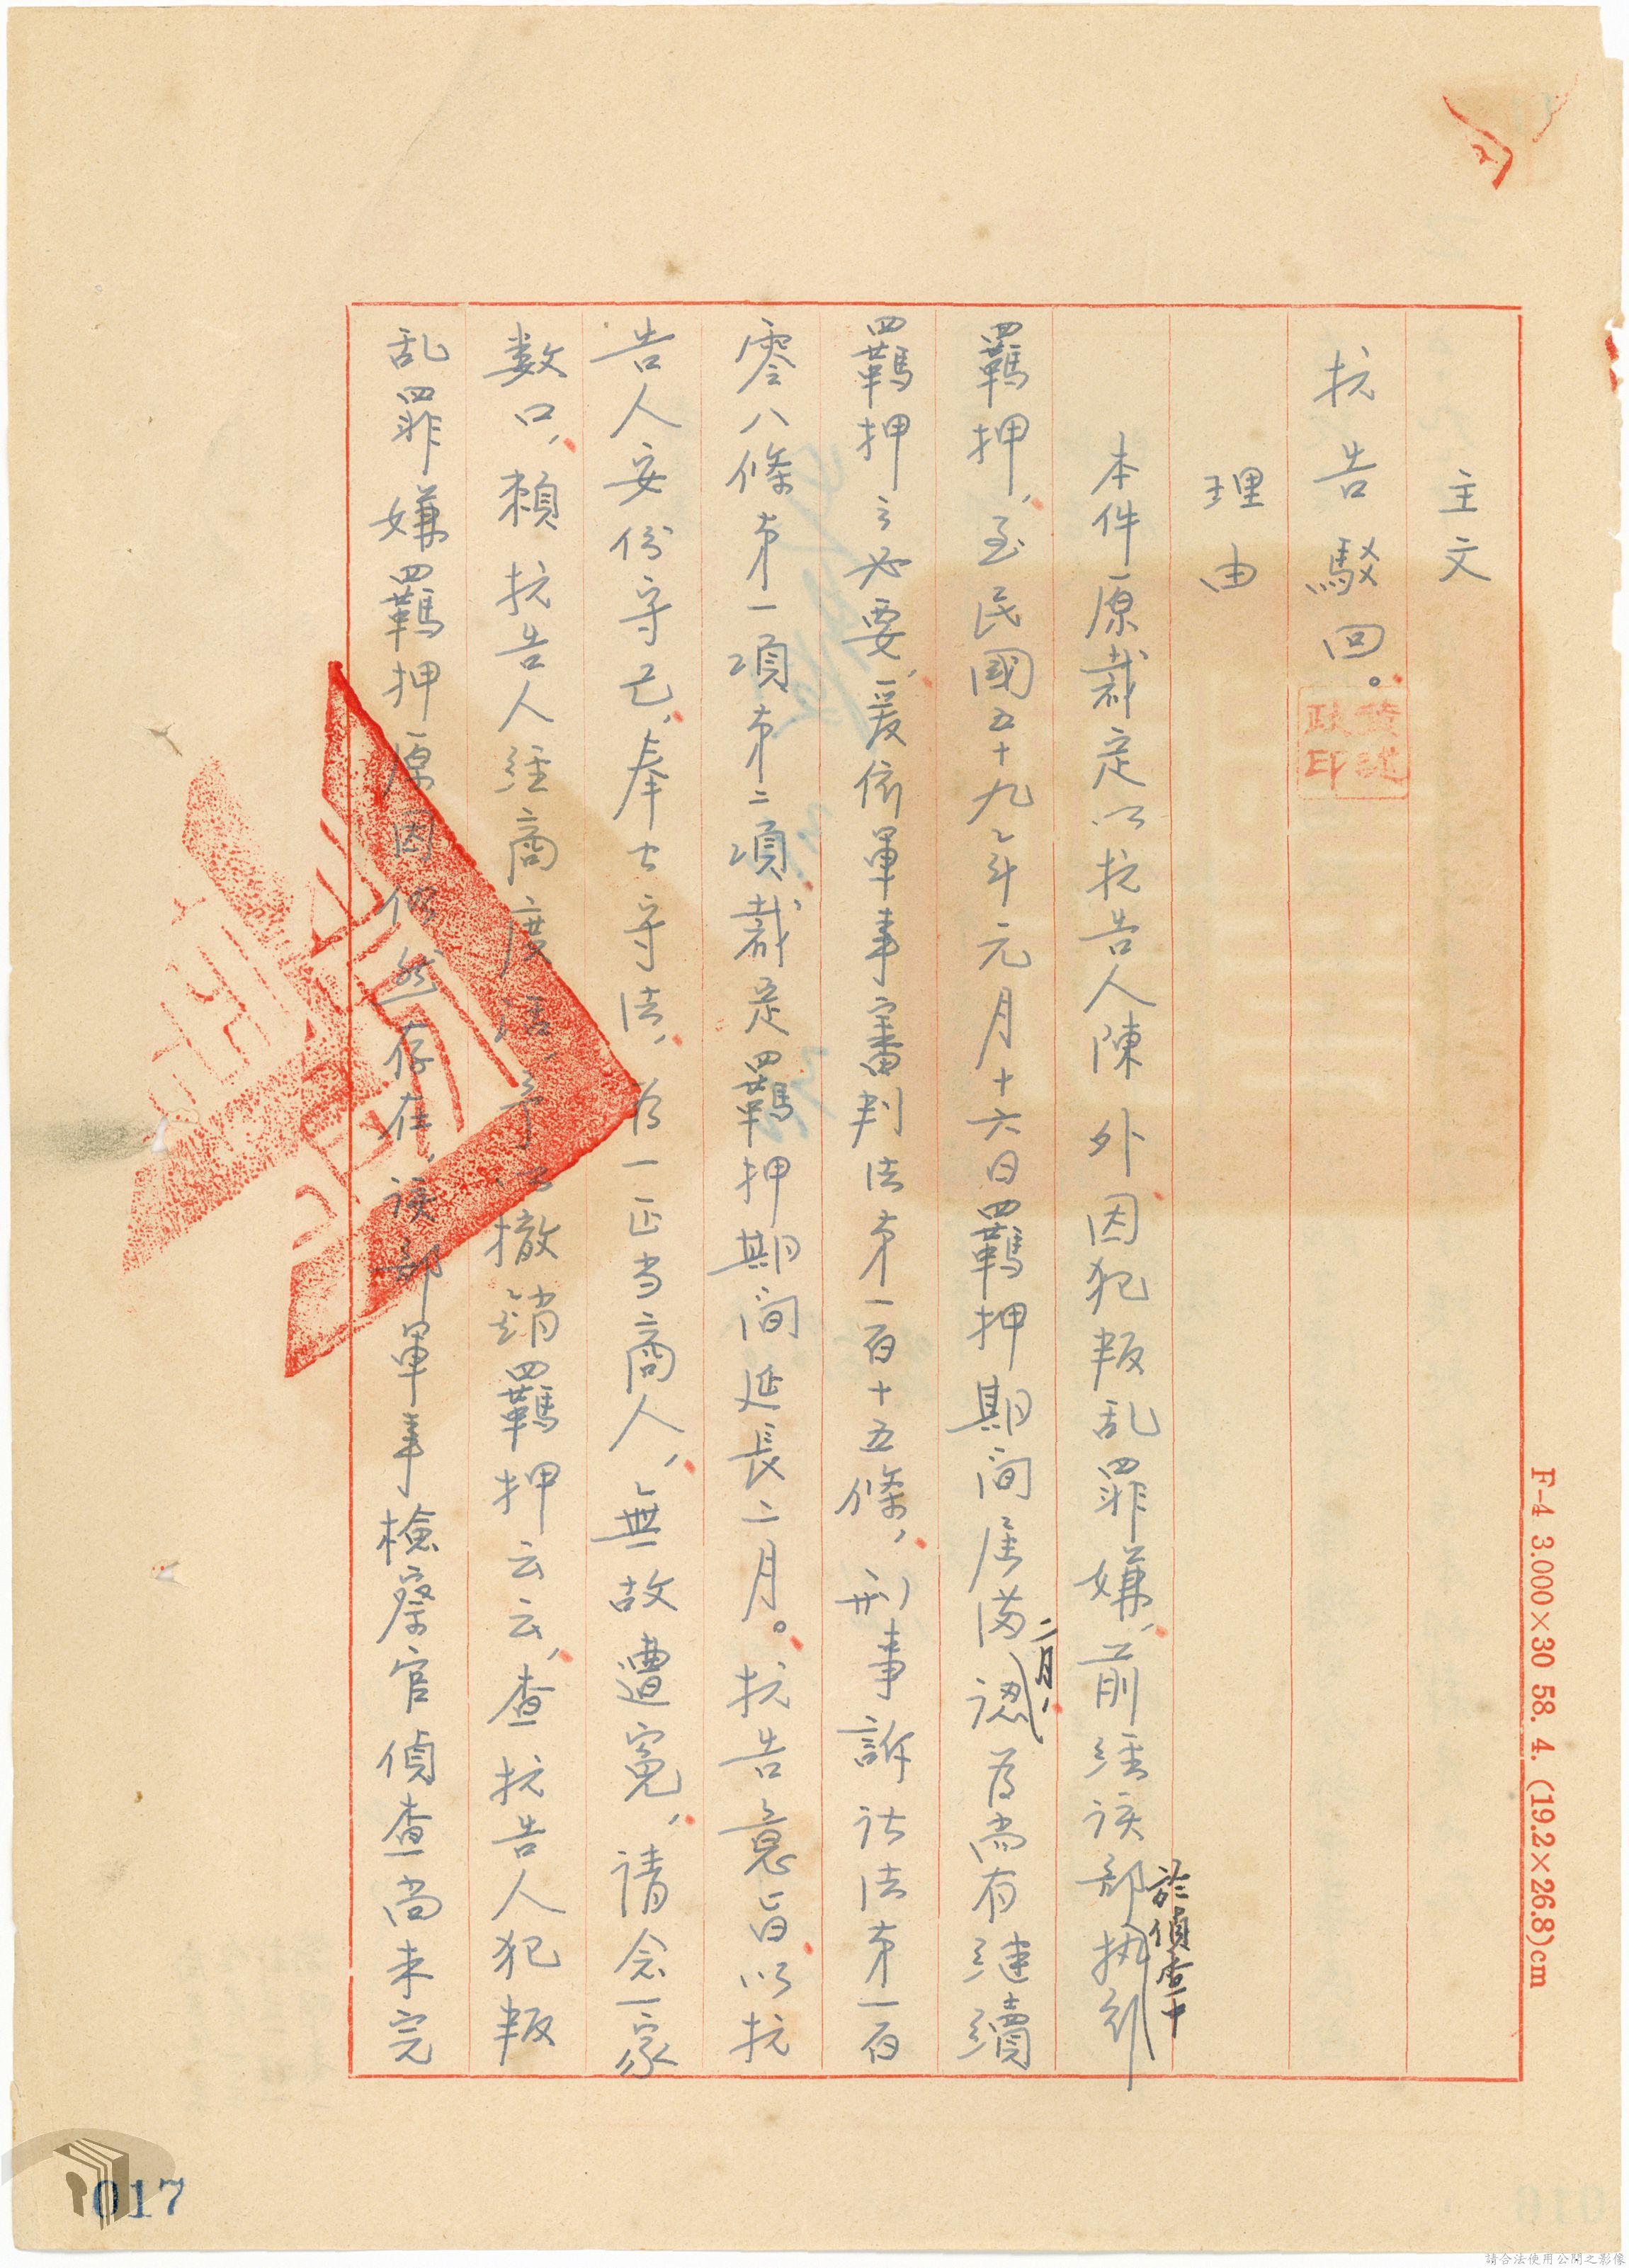 主文
抗告駁回。
理由
本件原裁定以抗告人陳 外因犯叛乱罪嫌，前經該部执刻
於偵查中
羈押，至民國五十九年元月十六日羈押期间屆满認為尚有継續
二月，
羈押之必要，爰依軍事審判法第一百十五條，刑事訴訟法第一百
零八條第一項第二項裁定羈押期间延長二月。抗告意旨以抗
告人安份守己，奉士守法，为一正当商人，無故遭冤，请念一家
数口，賴抗告人經商度活，予以撤銷羈押云云，查抗告人犯叛
乱罪嫌羈押原因仍然存在，该部軍事檢察官偵查尚未完
黄
政
印
F-4 3.000×30 58. 4. (19.2×26.8)cm
017
016
請合法使用公開之影像